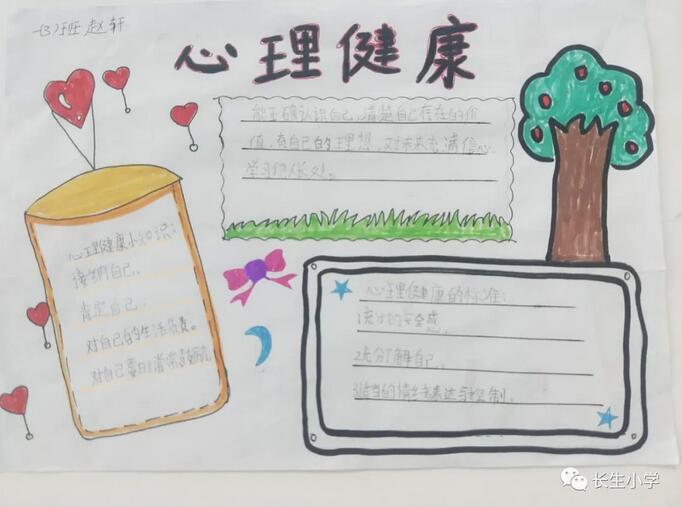 一(3)班赵轩
心理健康
能正确认识自己,清楚自己存在的价
值,有自己的理想,对未来充满信心
学习他人长处。
心理健康小知识:
接纳自己。
肯定自己。
对自己的生活负责。
对自己要日常鼓励
心理健康的标准:
1充分的安全感
2充分了解自己。
3适当的情绪表达与控制。
长生小学